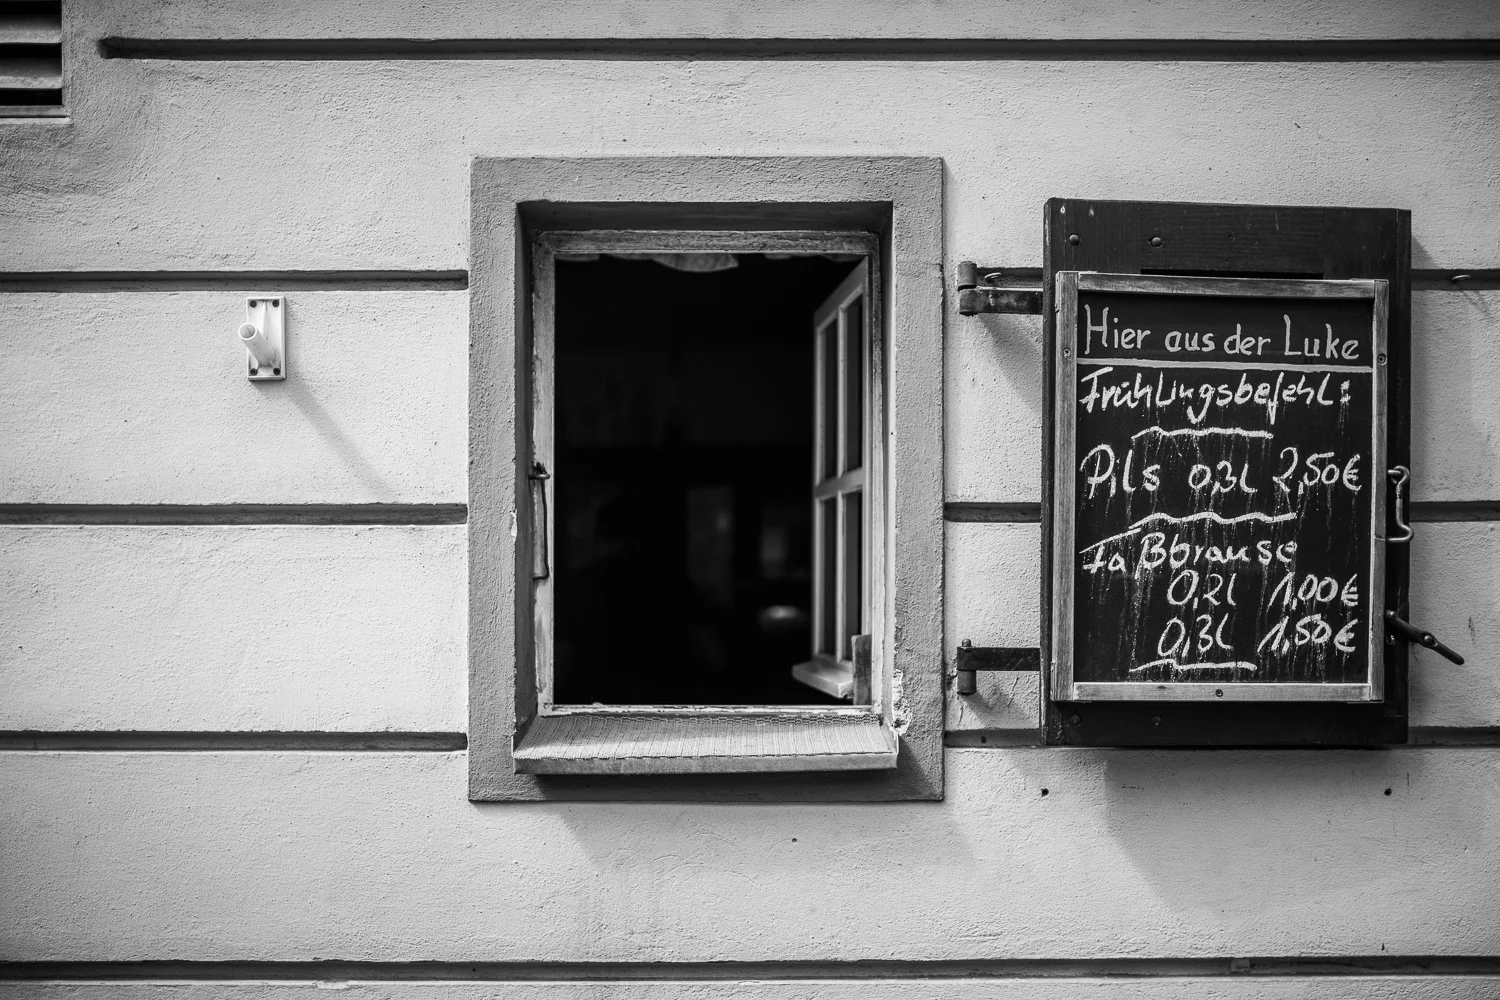 Hier aus der Luke
Frühlingsbefehl:
Pils 0,3l 2,50€
Faßbrause
0,2l 1,00€
0,3l 1,50€